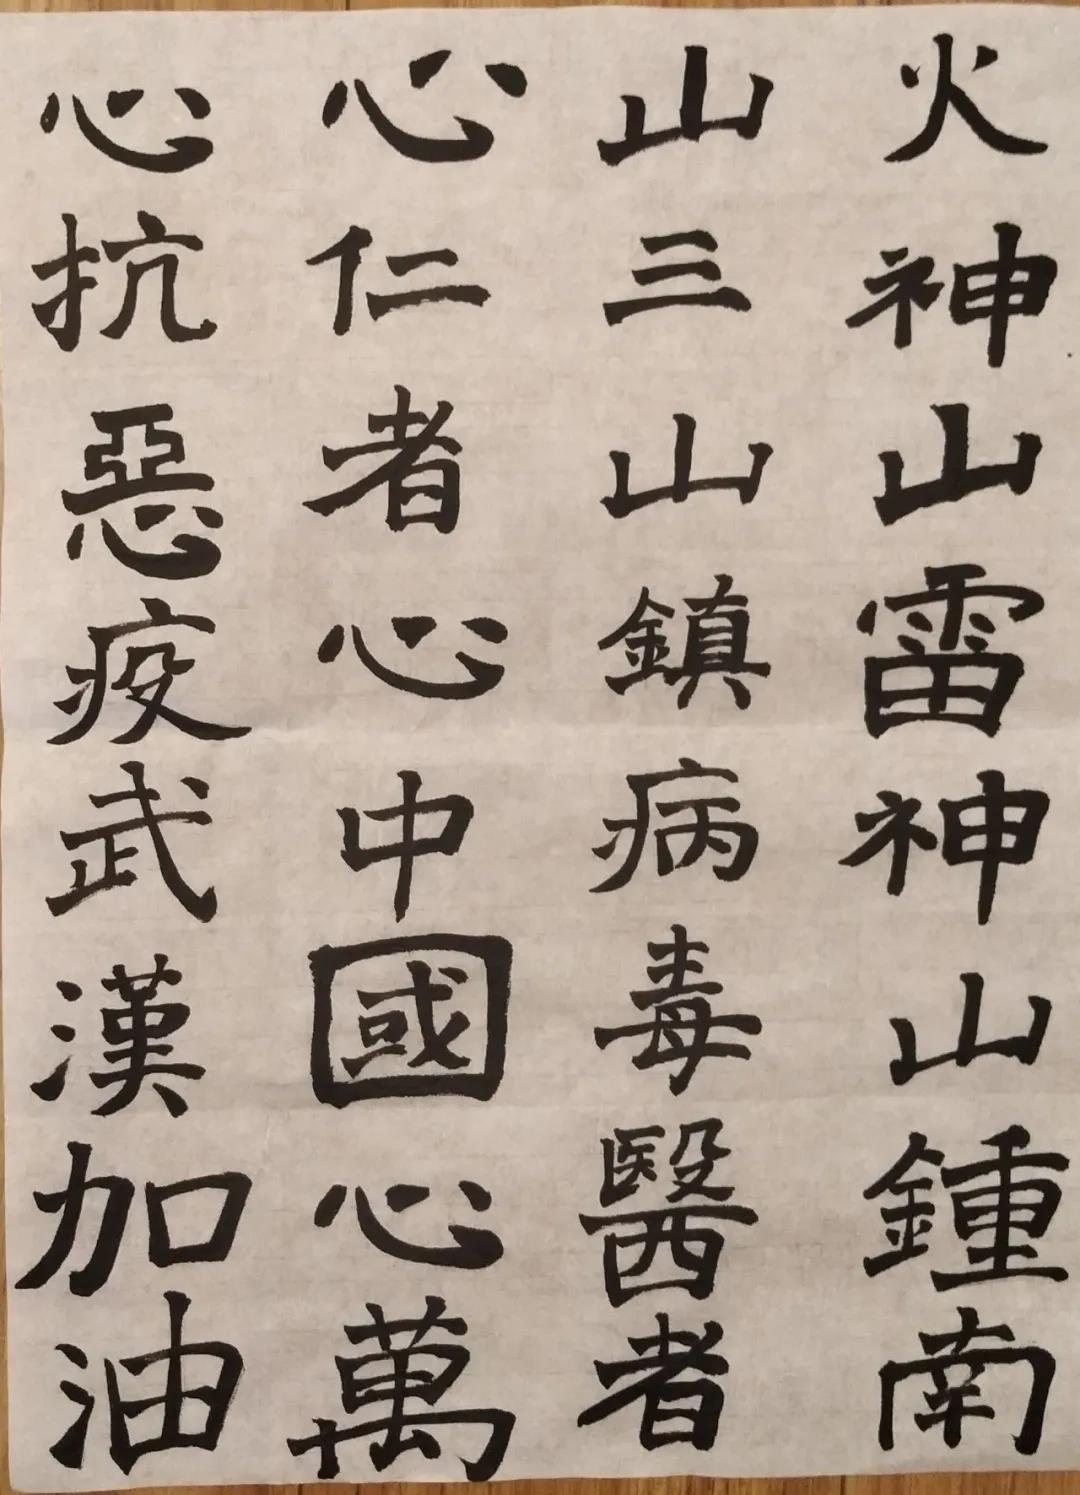 火神山雷神山鍾南
山三山鎮病毒醫者
心仁者心中國心萬
心抗惡疫武漢加油